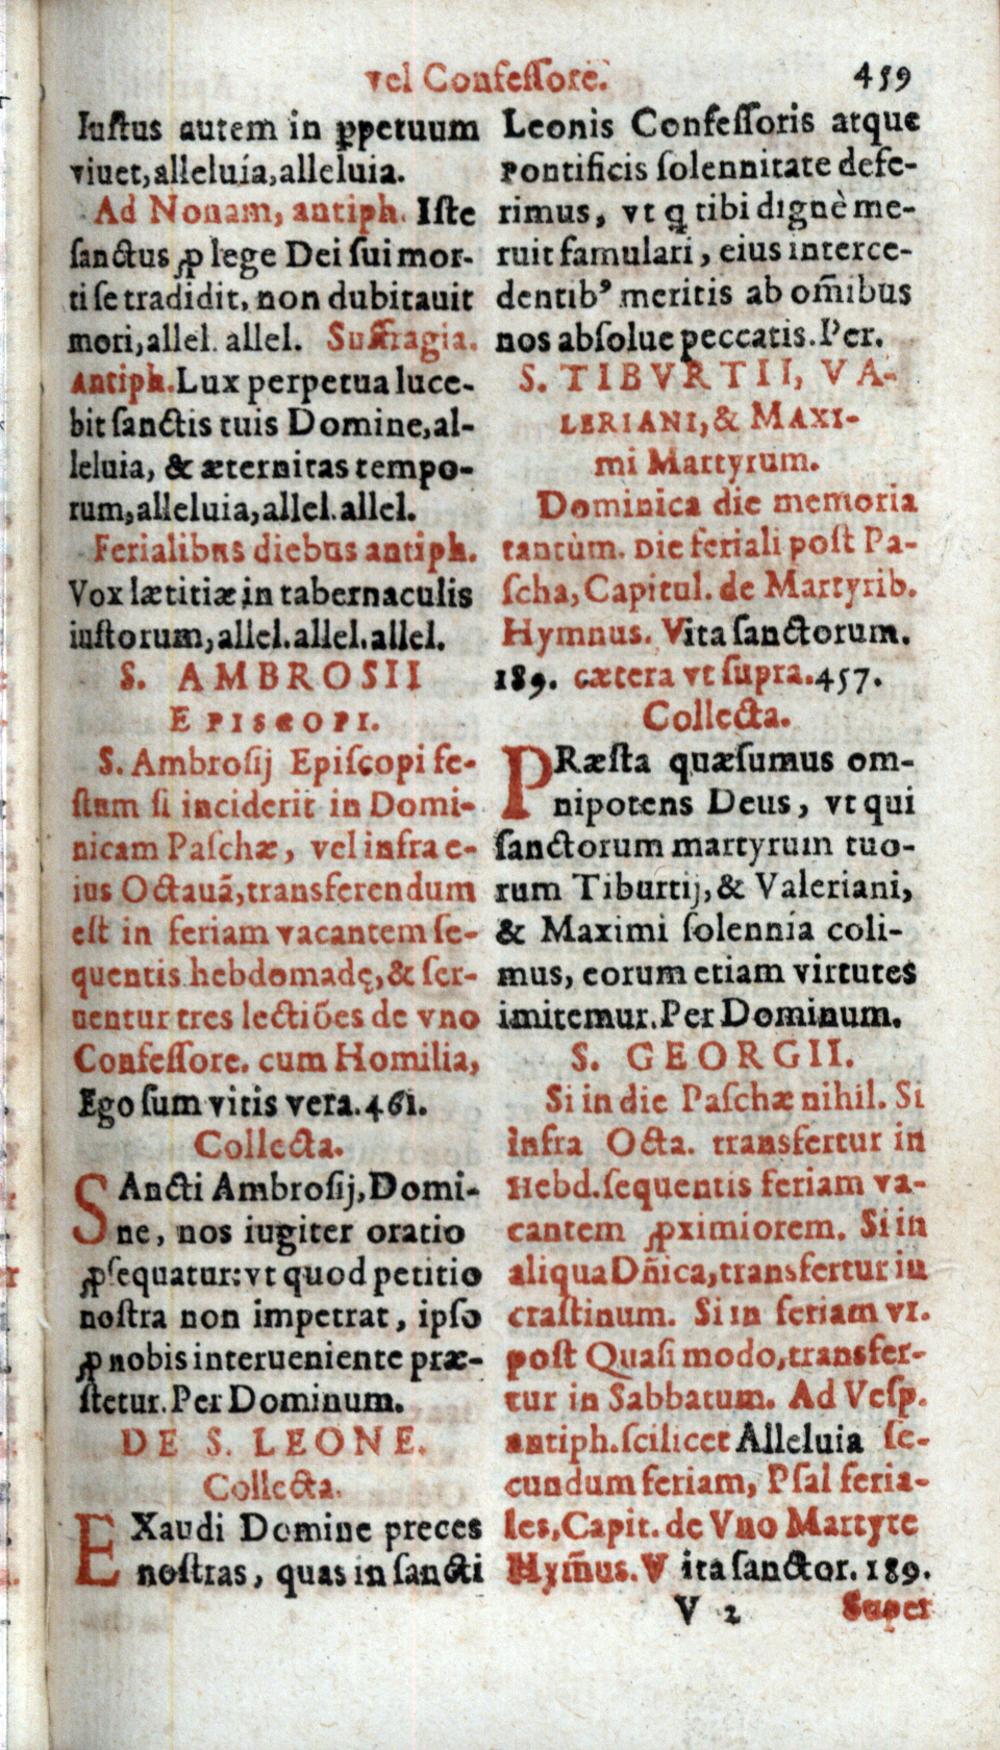 vel Confessore. 459
Iustus autem in ꝑpetuum
viuet, alleluia, alleluia.
Ad Nonam, antiph. Iste
sanctus ꝓ lege Dei sui mor-
ti se tradidit, non dubitauit
mori, allel. allel. Suffragia.
Antiph. Lux perpetua luce-
bit sanctis tuis Domine, al-
leluia, & æternitas tempo-
rum, alleluia, allel. allel.
Ferialibus diebus antiph.
Vox lætitiæ in tabernaculis
iustorum, allel. allel. allel.
S. AMBROSII
EPISCOPI.
S. Ambrosij Episcopi fe-
stum si inciderit in Domi-
nicam Paschæ, vel infra e-
ius Octauã, transferendum
est in feriam vacantem se-
quentis hebdomadę, & ser-
uentur tres lectiões de vno
Confessore. cum Homilia,
Ego sum vitis vera. 461.
Collecta.
SAncti Ambrosij, Domi-
ne, nos iugiter oratio
ꝓsequatur: vt quod petitio
nostra non impetrat, ipso
ꝓ nobis interueniente præ-
stetur. Per Dominum.
DE S. LEONE.
Collecta.
EXaudi Domine preces
nostras, quas in sancti
Leonis Confessoris atque
Pontificis solennitate defe-
rimus, vt ꝗ tibi dignè me-
ruit famulari, eius interce-
dentibꝰ meritis ab om̃ibus
nos absolue peccatis. Per.
S. TIBVRTII, VA-
LERIANI, & MAXI-
mi Martyrum.
Dominica die memoria
tantùm. Die feriali post Pa-
scha, Capitul. de Martyrib.
Hymnus. Vita sanctorum.
189. cætera vt supra. 457.
Collecta.
PRæsta quæsumus om-
nipotens Deus, vt qui
sanctorum martyrum tuo-
rum Tiburtij, & Valeriani,
& Maximi solennia coli-
mus, eorum etiam virtutes
imitemur. Per Dominum.
S. GEORGII.
Si in die Paschæ nihil. Si
infra Octa. transfertur in
Hebd. sequentis feriam va-
cantem ꝓximiorem. Si in
aliqua Dñica, transfertur in
crastinum. Si in feriam VI.
post Quasi modo, transfer-
tur in Sabbatum. Ad Vesp.
antiph. scilicet Alleluia se-
cundum feriam, Psal feria-
les, Capit. de Vno Martyre
Hym̃us. V ita sanctor. 189.
V 2 Super